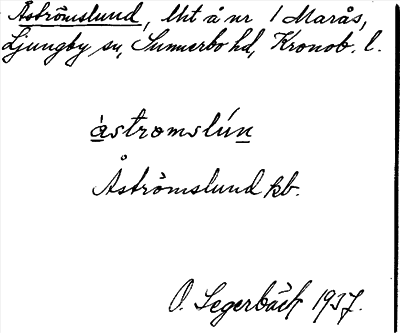 Åströmslund, lht å nr 1 Marås,
Ljungby sn, Sunnerbo hd, Kronob. l.
åstromslún
Åströmslund kb.
O. Segerbäck 1937.